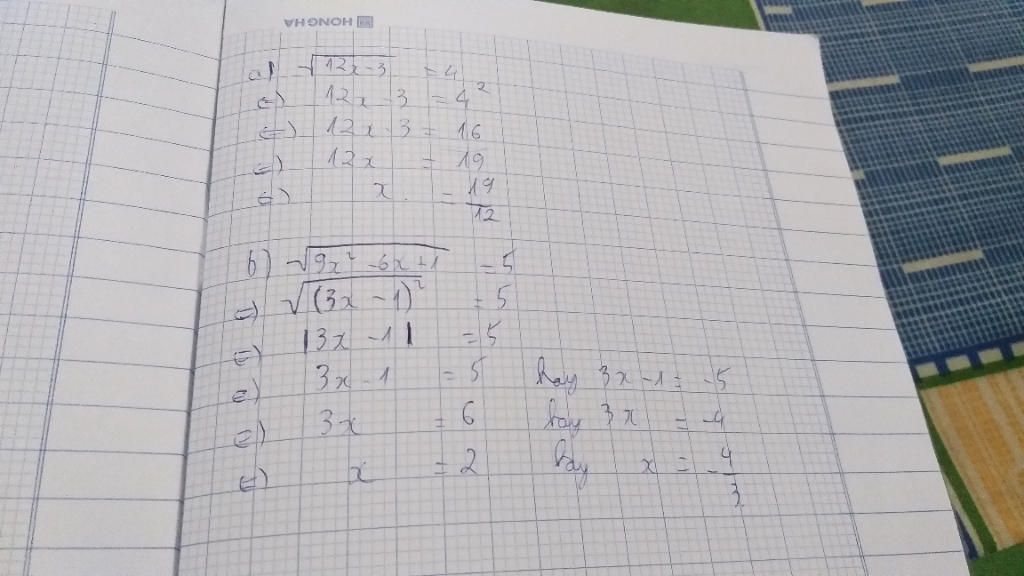 HONGHA
a) √(12x-3) = 4
⇔) 12x-3 = 4²
⇔) 12x-3 = 16
⇔) 12x = 19
⇔) x = 19/12
b) √(9x² -6x+1) = 5
⇔) √((3x -1)²) = 5
⇔) |3x -1| = 5
⇔) 3x-1 = 5 hay 3x-1 = -5
⇔) 3x = 6 hay 3x = -4
⇔) x = 2 hay x = -4/3